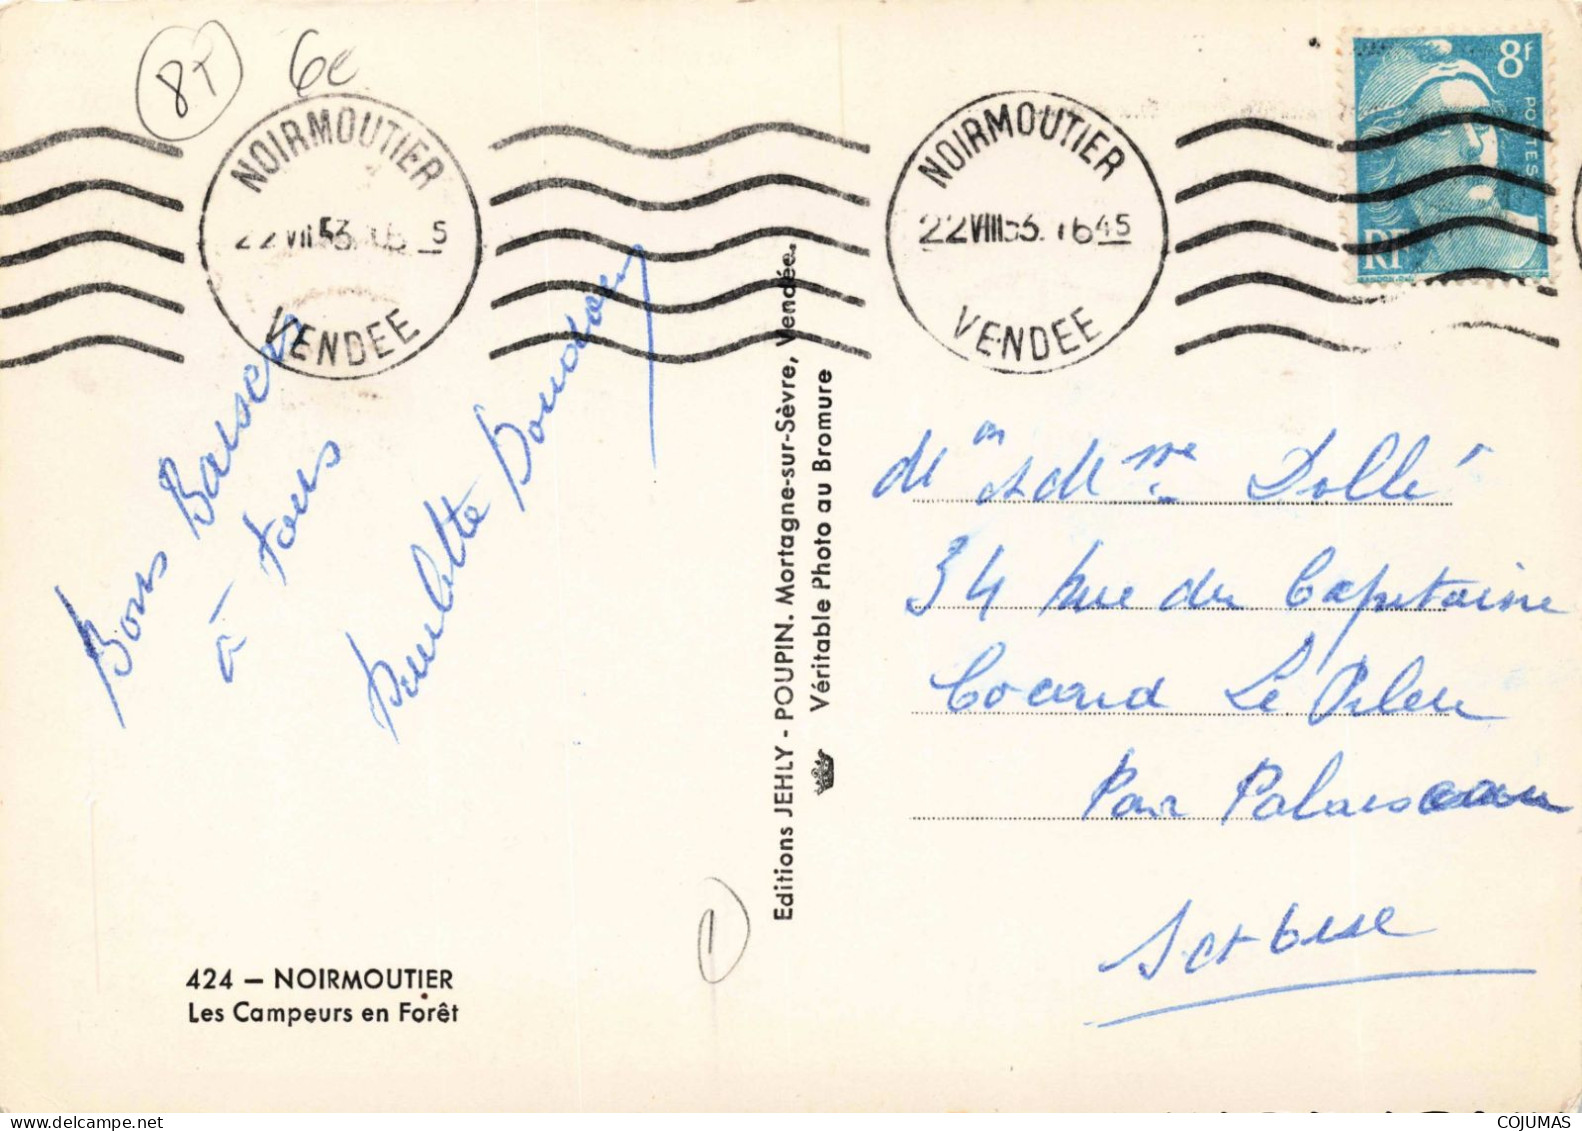 8T
6e
NOIRMOUTIER
22 VIII 53. 16 45
VENDEE
NOIRMOUTIER
22 VIII 53. 16 45
VENDEE
8f
POSTES
RF
Bons Baisers
à tous
Paulette
Editions JEHLY - POUPIN. Mortagne-sur-Sèvre, Vendée.
Véritable Photo au Bromure
Mr et Mme Dollé
34 Rue du Capitaine
Cocard Le Pileu
Par Palaiseau
S et Oise
424 — NOIRMOUTIER
Les Campeurs en Forêt
COJUMAS